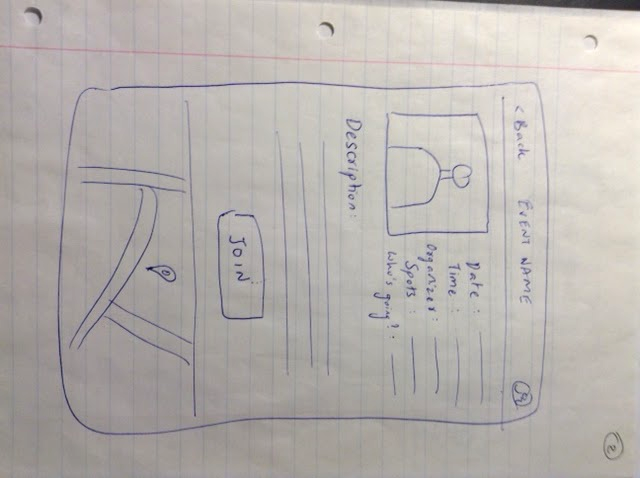 ②
< Back EVENT NAME
Date:
Time:
Organizer:
Spots:
Who's going?:
Description:
JOIN